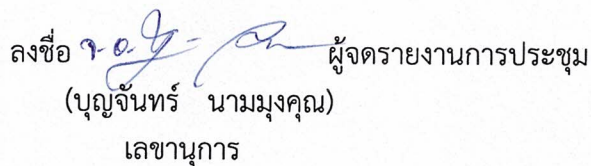 ลงชื่อ ผู้จดรายงานการประชุม
(บุญจันทร์ นามมุงคุณ)
เลขานุการ